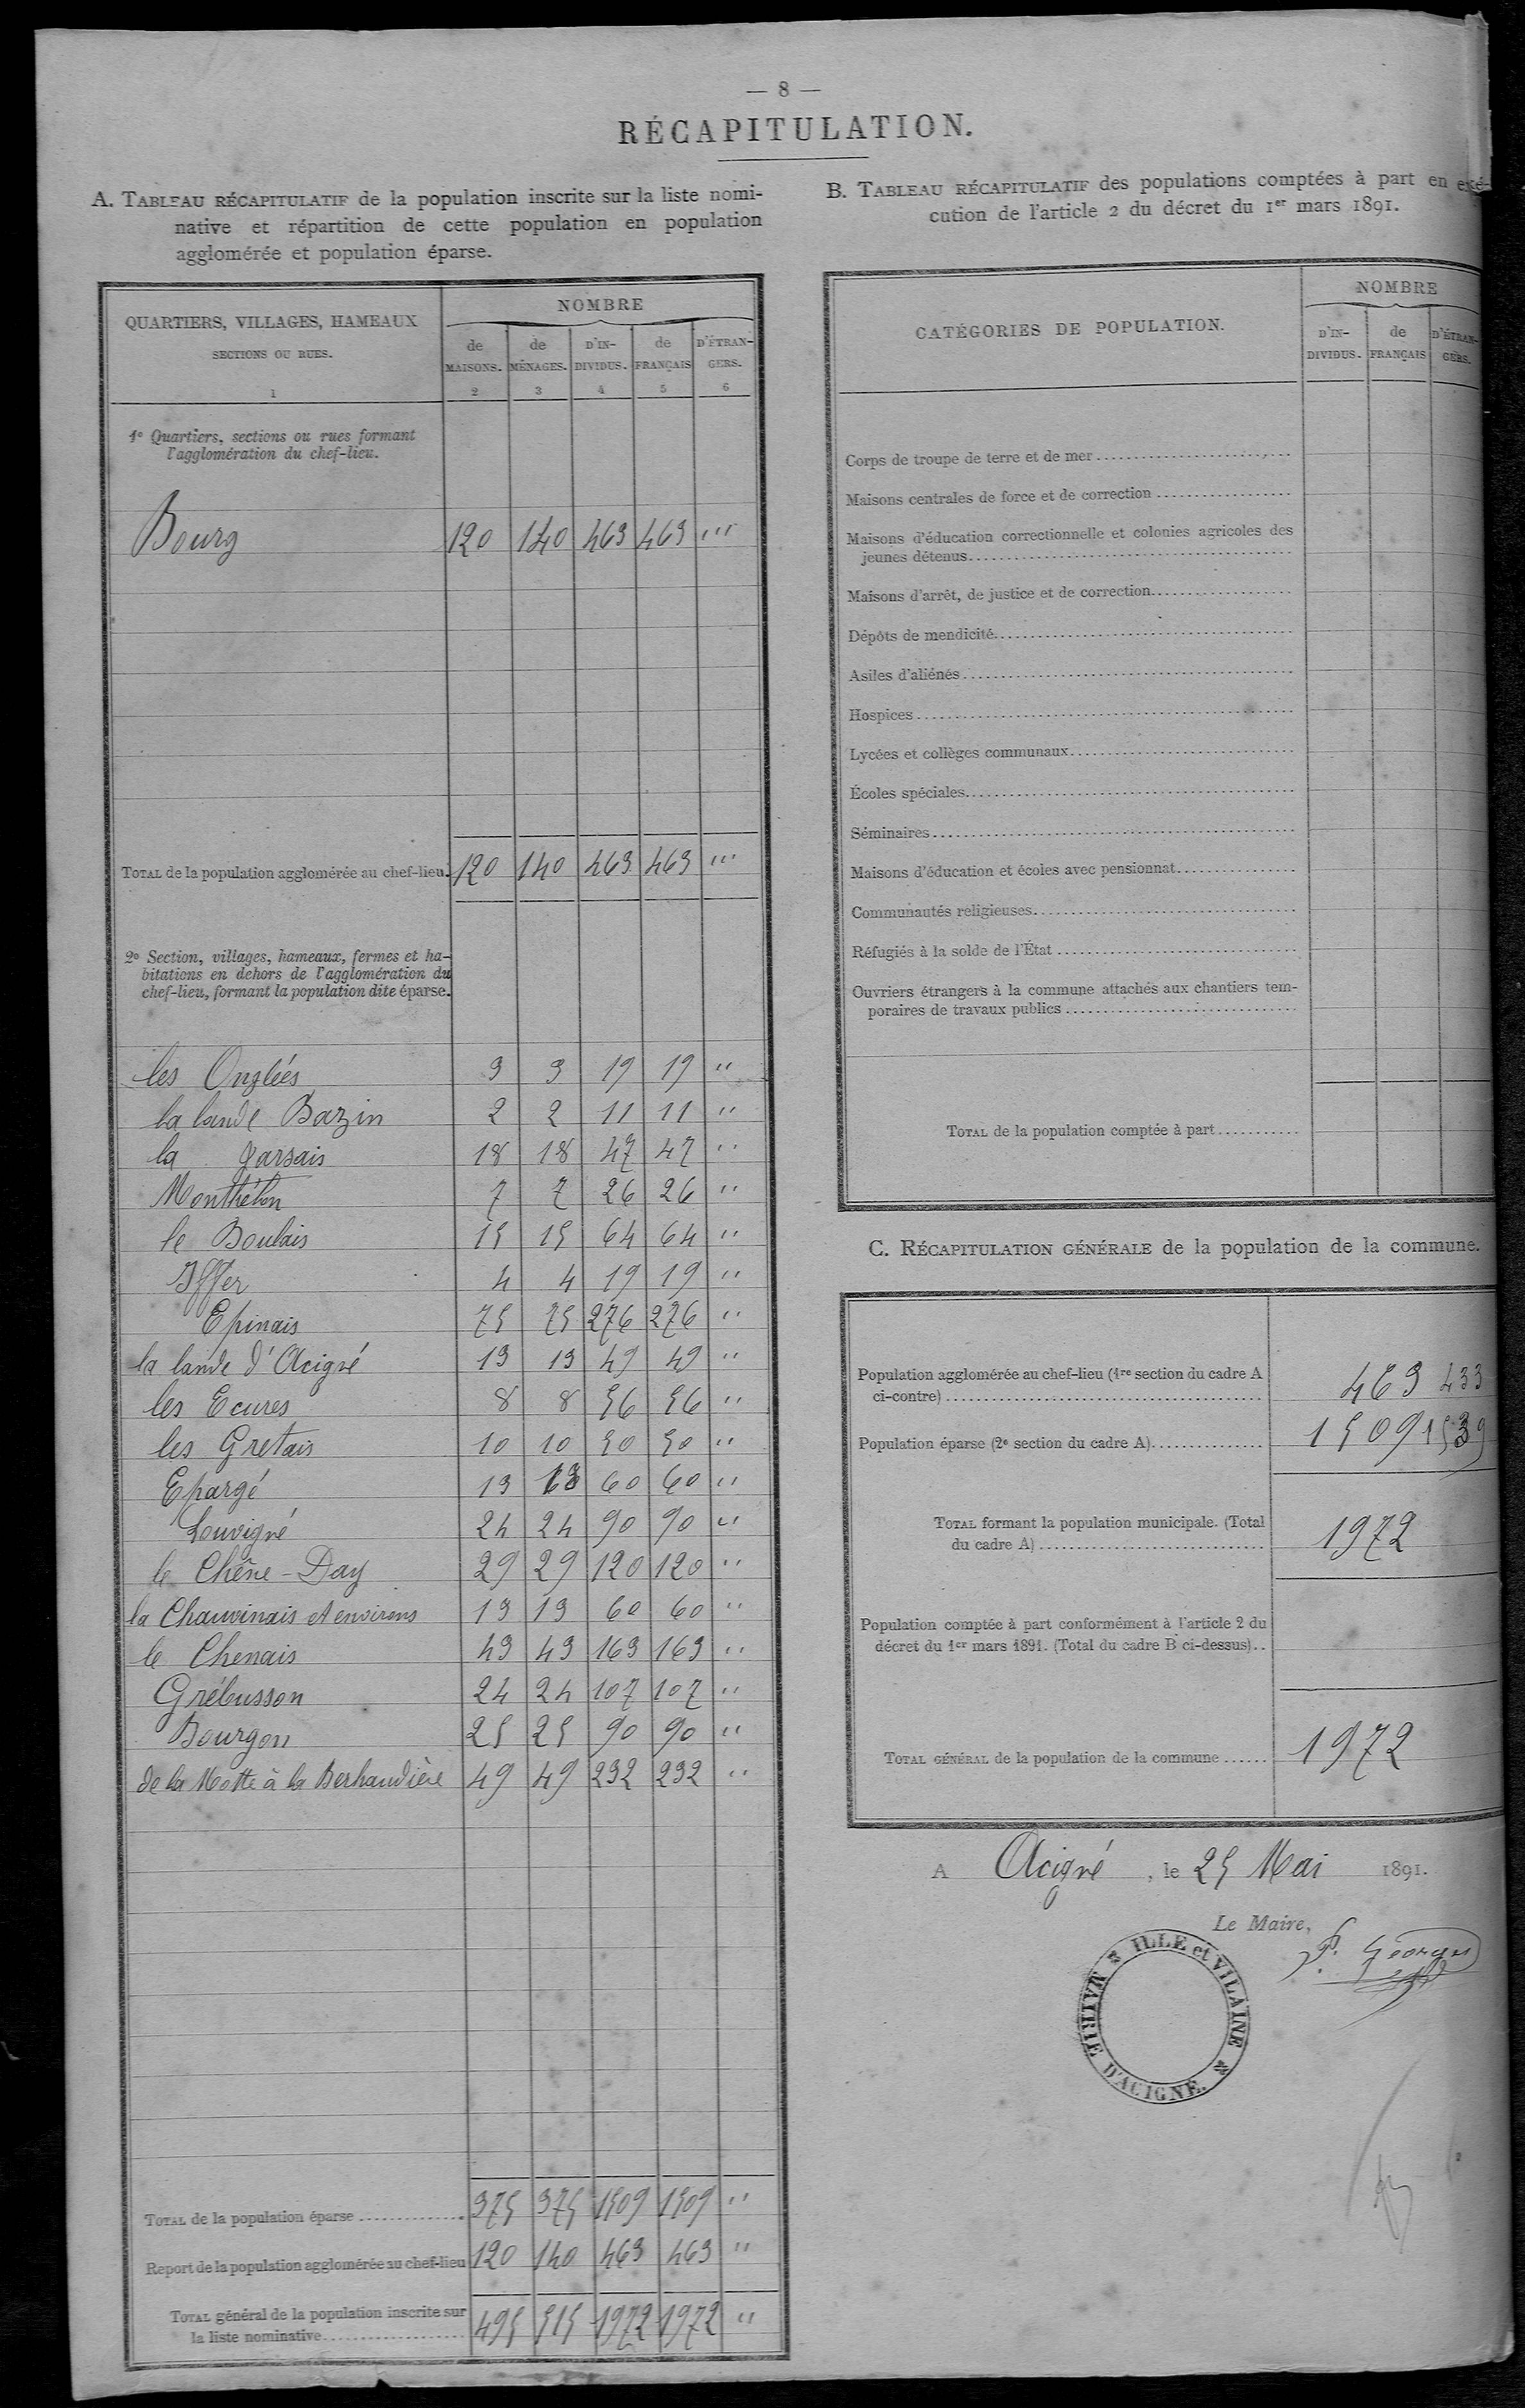 — 8 —
RÉCAPITULATION.
A. TABLEAU RÉCAPITULATIF de la population inscrite sur la liste nomi-
native et répartition de cette population en population
agglomérée et population éparse.
QUARTIERS, VILLAGES, HAMEAUX
SECTIONS OU RUES.
1
NOMBRE
de MAISONS. de MÉNAGES. D'IN-DIVIDUS. de FRANÇAIS D'ÉTRAN-GERS.
2 3 4 5 6
1° Quartiers, sections ou rues formant
l'agglomération du chef-lieu.
Bourg 120 140 463 463 '''
TOTAL de la population agglomérée au chef-lieu. 120 140 463 463 '''
2° Section, villages, hameaux, fermes et ha-
bitations en dehors de l'agglomération du
chef-lieu, formant la population dite éparse.
les Onglées 3 3 19 19 ''
la lande Bazin 2 2 11 11 ''
la Jarsais 18 18 47 47 ''
Monthélon 7 7 26 26 ''
le Boulais 15 15 64 64 ''
Iffer 4 4 19 19 ''
Epinais 75 75 276 276 ''
la lande d'Acigné 13 13 49 49 ''
les Ecures 8 8 56 56 ''
les Gretais 10 10 50 50 ''
Epargé 13 13 60 60 ''
Louvigné 24 24 90 90 ''
le Chêne-Day 29 29 120 120 ''
la Chauvinais et environs 13 13 60 60 ''
le Chenais 43 43 163 163 ''
Grébusson 24 24 107 107 ''
Bourgon 25 25 90 90 ''
de la Motte à la Berhaudière 49 49 232 232 ''
TOTAL de la population éparse 375 375 1509 1509 ''
Report de la population agglomérée au chef-lieu 120 140 463 463 ''
TOTAL général de la population inscrite sur
la liste nominative 495 515 1972 1972 ''
B. TABLEAU RÉCAPITULATIF des populations comptées à part en exé-
cution de l'article 2 du décret du 1er mars 1891.
CATÉGORIES DE POPULATION.
NOMBRE
D'IN-DIVIDUS. de FRANÇAIS D'ÉTRAN-GERS.
Corps de troupe de terre et de mer
Maisons centrales de force et de correction
Maisons d'éducation correctionnelle et colonies agricoles des
jeunes détenus
Maisons d'arrêt, de justice et de correction
Dépôts de mendicité
Asiles d'aliénés
Hospices
Lycées et collèges communaux
Écoles spéciales
Séminaires
Maisons d'éducation et écoles avec pensionnat
Communautés religieuses
Réfugiés à la solde de l'État
Ouvriers étrangers à la commune attachés aux chantiers tem-
poraires de travaux publics
TOTAL de la population comptée à part
C. RÉCAPITULATION GÉNÉRALE de la population de la commune.
Population agglomérée au chef-lieu (1re section du cadre A
ci-contre) 463 433
Population éparse (2e section du cadre A) 1509 1539
TOTAL formant la population municipale. (Total
du cadre A) 1972
Population comptée à part conformément à l'article 2 du
décret du 1er mars 1891. (Total du cadre B ci-dessus)..
TOTAL GÉNÉRAL de la population de la commune 1972
A Acigné, le 25 Mai 1891.
Le Maire,
P. Georges
ILLE et VILAINE
MAIRIE D'ACIGNÉ.